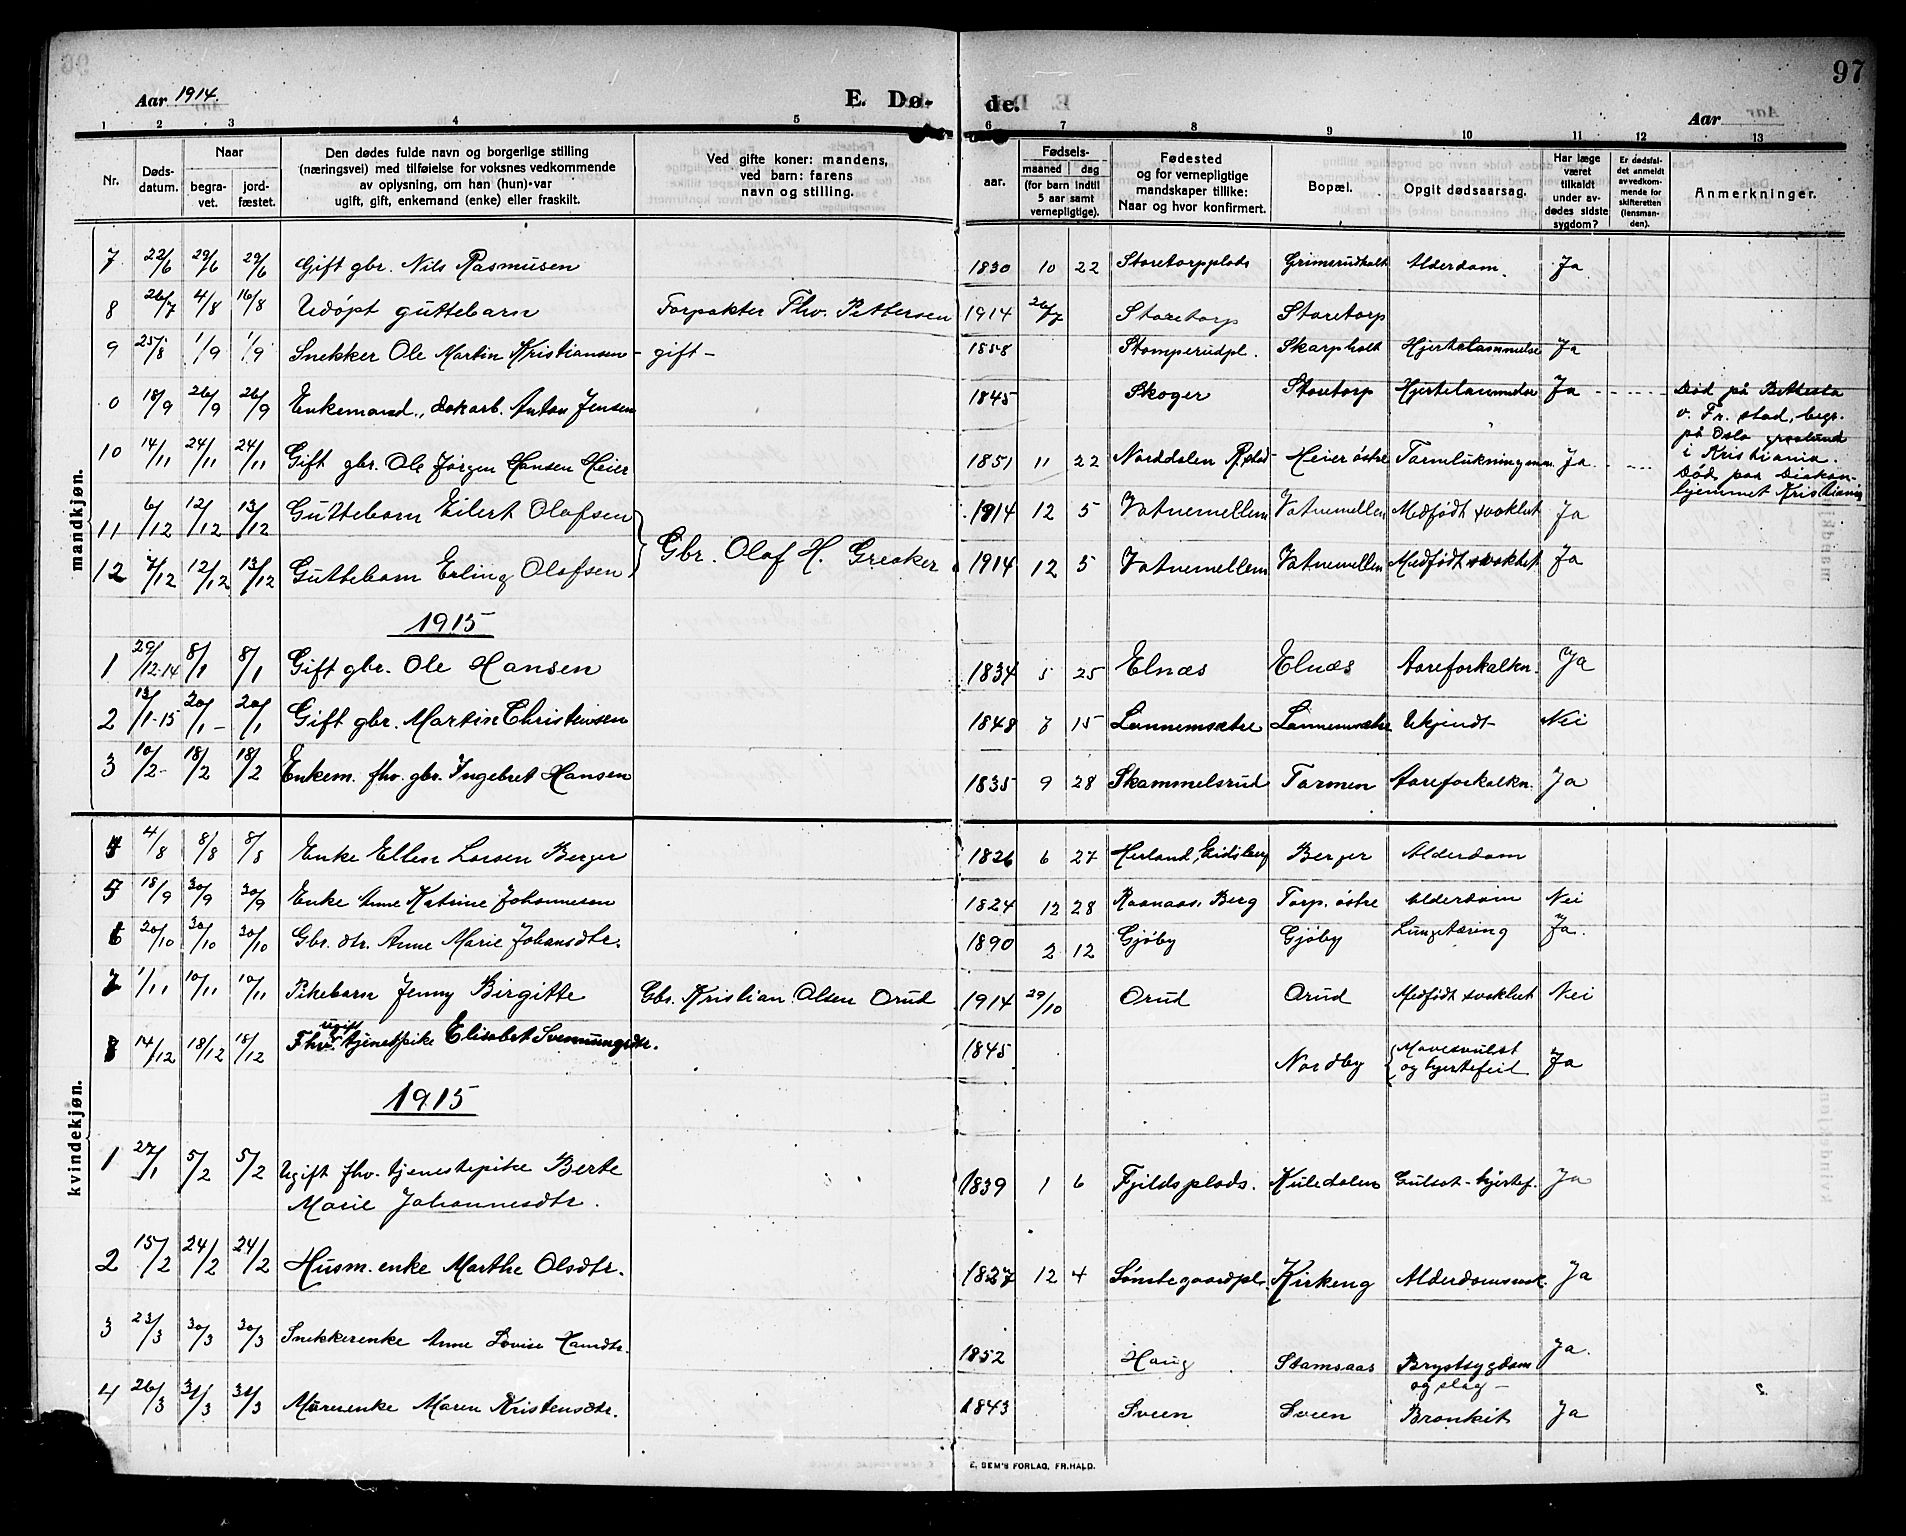 97
Aar 1914. E. Dø- de. Aar
1 2 3 4 5 6 7 8 9 10 11 12 13
Nr. Døds-datum. Naar begra-vet. jord-fæstet. Den dødes fulde navn og borgerlige stilling (næringsvei) med tilføielse for voksnes vedkommende av oplysning, om han (hun) var ugift, gift, enkemand (enke) eller fraskilt. Ved gifte koner: mandens, ved barn: farens navn og stilling. aar. Fødsels- maaned dag (for barn indtil 5 aar samt vernepligtige). Fødested og for vernepligtige mandskaper tillike: Naar og hvor konfirmert. Bopæl. Opgit dødsaarsag. Har læge været tilkaldt under av-dødes sidste sygdom? Er dødsfal-det anmeldt av vedkom-mende for skifteretten (lensman-den). Anmerkninger.
mandkjøn.
7 22/6 29/6 29/6 Gift gbr. Nils Rasmusen 1830 10 22 Storetorpplads Grimsrudholt Alderdom. Ja
8 26/7 4/8 16/8 Udøpt guttebarn Forpakter Thv. Pettersen 1914 26/7 Storetorp Storetorp
9 25/8 1/9 1/9 Snekker Ole Martin Kristiansen - gift - 1858 Stomperudpl. Skarpholt Hjertelammelse Ja
0 18/9 26/9 26/9 Enkemand, dokarb. Anton Jensen 1845 Skoger Storetorp Hjertelammelse Ja Død på Bethesda
v. Fr. stad, begr.
på Oslo gravlund
i Kristiania.
10 14/11 24/11 24/11 Gift gbr. Ole Jørgen Hansen Heier 1851 11 22 Norddalen R. plad Heier østre Tarmlukning Ja Død paa Diakon-
hjemmet Kristiania
11 6/12 12/12 13/12 Guttebarn Eilert Olafsen 1914 12 5 Vatnemellem Vatnemellem Medfødt svakhet Ja
Gbr. Olaf H. Greaker
12 7/12 12/12 13/12 Guttebarn Erling Olafsen 1914 12 5 Vatnemellem Vatnemellem Medfødt svakhet Ja
1915
1 29/12-14 8/1 8/1 Gift gbr. Ole Hansen 1834 5 25 Elnæs Elnæs Aareforkalkn. Ja
2 13/1-15 20/1 20/1 Gift gbr. Martin Christensen 1848 7 15 Lannemsætre Lannemsætre Ukjendt Nei
3 10/2 18/2 18/2 Enkem. fhv. gbr. Ingebret Hansen 1835 9 28 Skammelsrud Tarmen Aareforkalkn. Ja
kvindekjøn.
4 4/8 8/8 8/8 Enke Ellen Larsen Berger 1826 6 27 Herland, Eidsberg Berger Alderdom
5 18/9 30/9 30/9 Enke Anne Katrine Johannesen 1824 12 28 Raanaas, Berg Torp. østre Alderdom Nei
6 20/10 30/10 30/10 Gbr. dtr. Anne Marie Johansdtr. 1890 2 12 Gjøby Gjøby Lungetæring Ja.
7 1/11 10/11 10/11 Pikebarn Jenny Birgitte Gbr. Kristian Olsen Orud 1914 29/10 Orud Orud Medfødt svakhet Nei
8 14/12 18/12 18/12 Fhv. ugift tjenestpike Elisabet Svennungsdtr. 1845 Nordby Mavesvulst
og hjertefeil Ja
1915
1 27/1 5/2 5/2 Ugift fhv. tjenestepike Berte
Marie Johannesdtr. 1839 1 6 Fjeldsplads. Kuledalen Gulsot - hjertef. Ja
2 15/2 24/2 24/2 Husm. enke Marthe Olsdtr. 1827 12 4 Sønstegaardpl. Kirkeng Alderdomssvak. Ja
3 23/3 30/3 30/3 Snekkerenke Anne Lovise Hansdtr. 1852 Haug Stamsaas Brystsygdom
og slag - Ja.
4 26/3 31/3 31/3 Murerenke Maren Kristensdtr. 1843 Sveen Sveen Bronkit Ja
E. SEM'S FORLAG, FR.HALD.